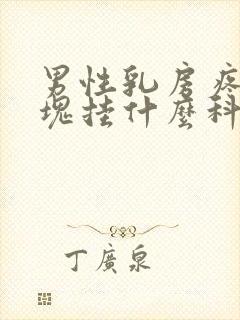 男性乳房疼
塊挂什麼科
丁廣泉